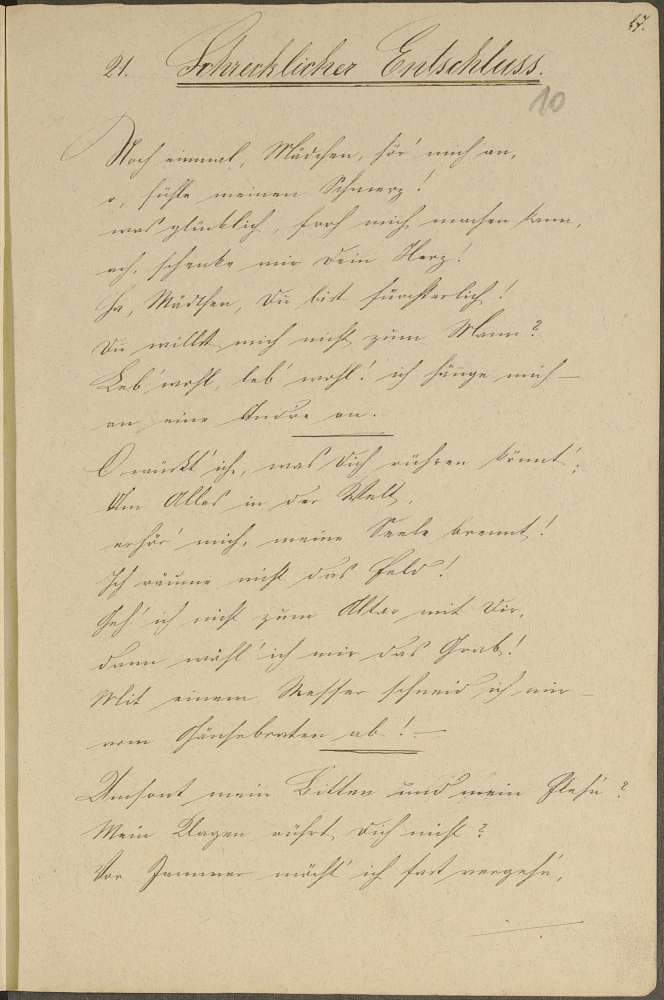 17.
21. Schrecklicher Entschluss.
10
Noch einmal, Mädchen, hör' mich an,
o, fühle meinen Schmerz!
was glücklich, froh mich machen kann,
ach, schenke mir Dein Herz!
Ha, Mädchen, Du bist fürchterlich!
Du willst mich nicht zum Mann?
Leb' wohl, leb' wohl! ich hänge mich –
an eine Andre an.
O wüsst' ich, was Dich rühren könnt',
Um Alles in der Welt,
erhör' mich, meine Seele brennt!
Ich räume nicht das Feld!
Geh' ich nicht zum Altar mit Dir,
dann wähl' ich mir das Grab!
Mit einem Messer schneid' ich mir –
vom Gänsebraten ab! –
Umsonst mein Bitten und mein Fleh'n?
Mein Klagen rührt Dich nicht?
Vor Jammer möcht' ich fast vergeh'n,